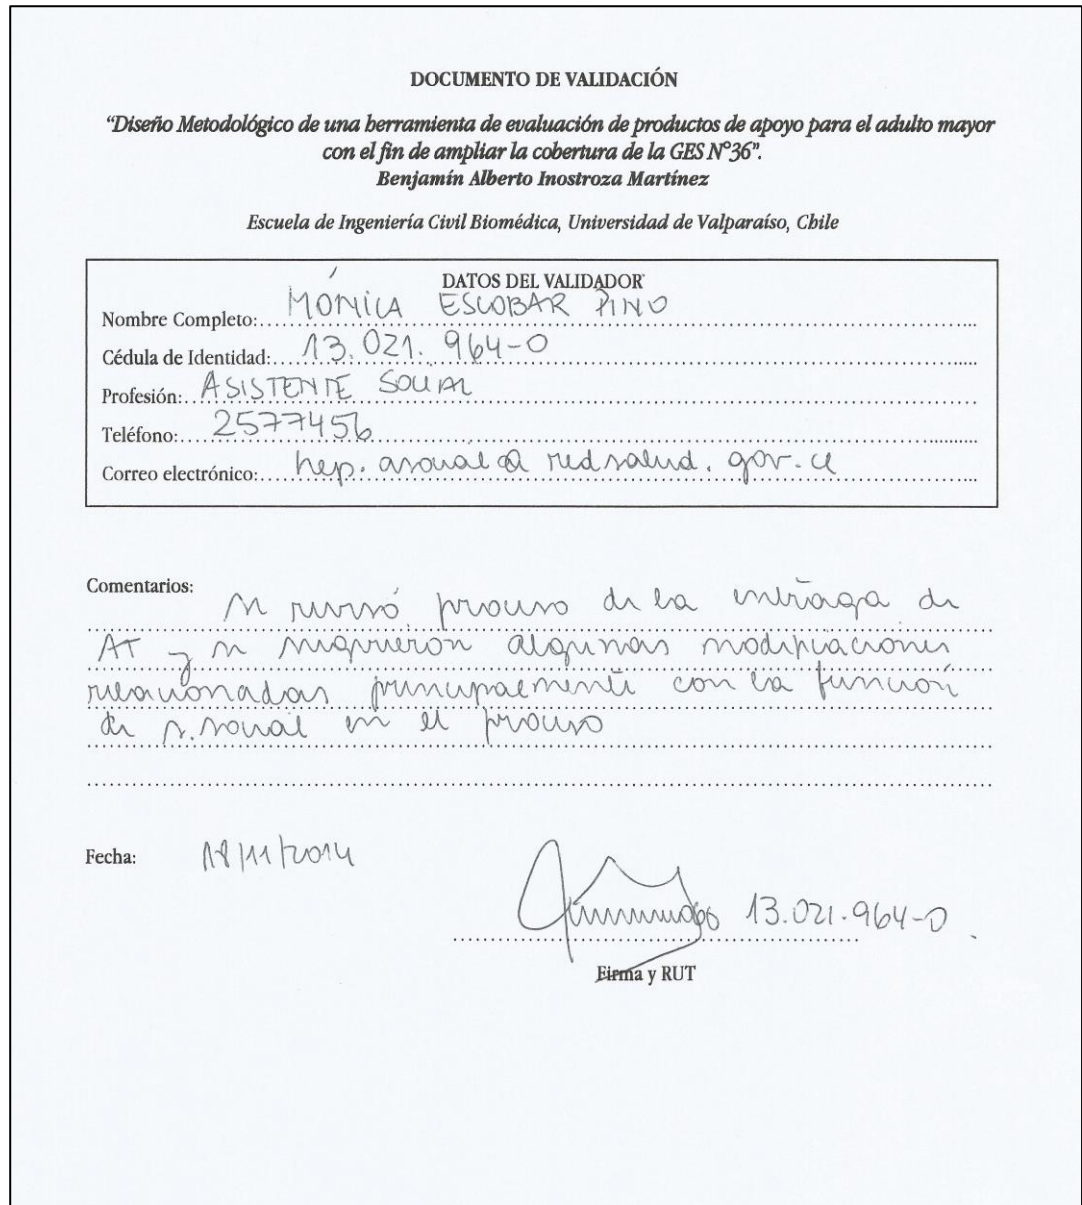 DOCUMENTO DE VALIDACIÓN
"Diseño Metodológico de una herramienta de evaluación de productos de apoyo para el adulto mayor
con el fin de ampliar la cobertura de la GES N°36".
Benjamín Alberto Inostroza Martínez
Escuela de Ingeniería Civil Biomédica, Universidad de Valparaíso, Chile
DATOS DEL VALIDADOR
Nombre Completo: MÓNICA ESCOBAR PINO
Cédula de Identidad: 13.021.964-0
Profesión: ASISTENTE SOCIAL
Teléfono: 2577456
Correo electrónico: hep.asocial@redsalud.gov.cl
Comentarios:
se revisó proceso de la entrega de
AT y se sugirieron algunas modificaciones
relacionadas principalmente con la función
de s. social en el proceso
Fecha: 18/11/2014
13.021.964-0
Firma y RUT